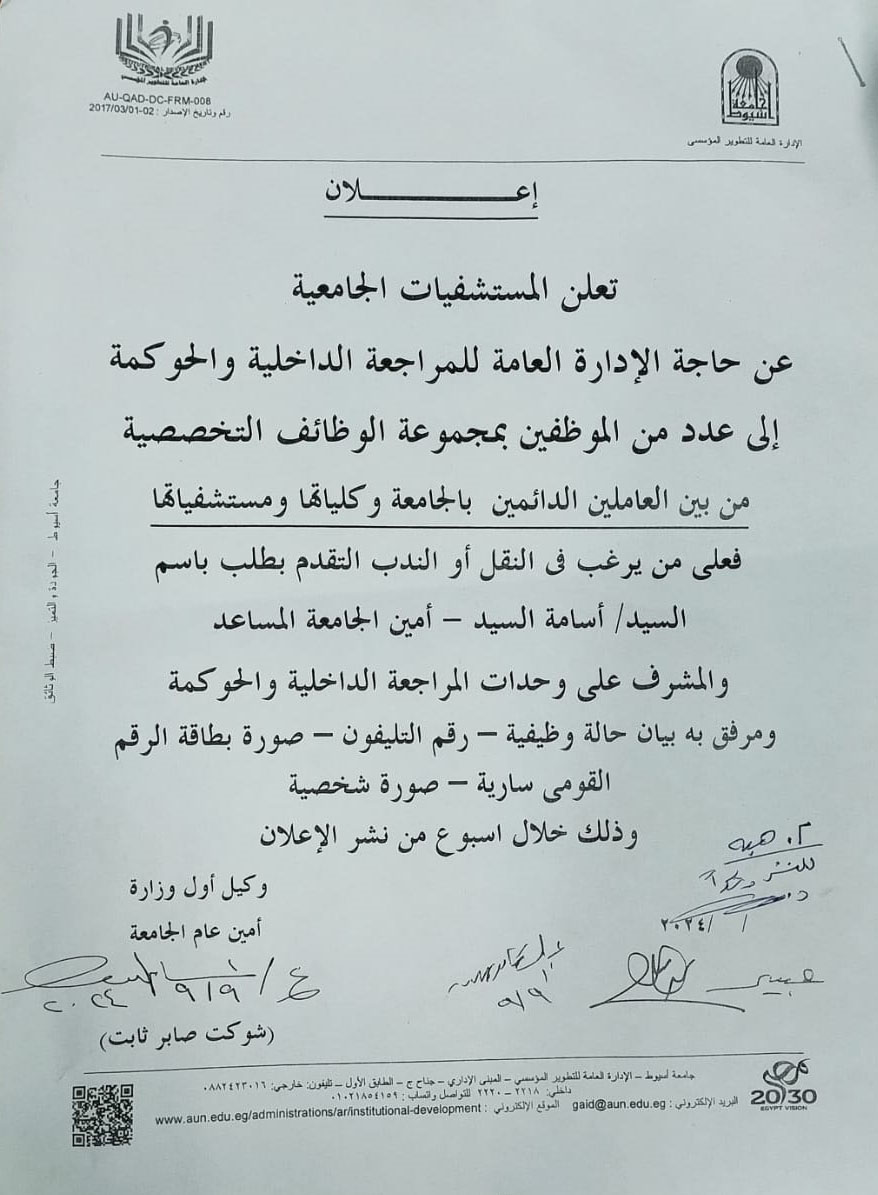 AU-QAD-DC-FRM-008
رقم وتاريخ الإصدار : 02-2017/03/01
جامعة أسيوط
الإدارة العامة للتطوير المؤسسى
إعـــــــــــلان
تعلن المستشفيات الجامعية
عن حاجة الإدارة العامة للمراجعة الداخلية والحوكمة
إلى عدد من الموظفين بمجموعة الوظائف التخصصية
من بين العاملين الدائمين بالجامعة وكلياتها ومستشفياتها
فعلى من يرغب فى النقل أو الندب التقدم بطلب باسم
السيد/ أسامة السيد – أمين الجامعة المساعد
والمشرف على وحدات المراجعة الداخلية والحوكمة
ومرفق به بيان حالة وظيفية – رقم التليفون – صورة بطاقة الرقم
القومى سارية – صورة شخصية
وذلك خلال اسبوع من نشر الإعلان
جامعة أسيوط – الجودة والتميز – ضبط الوثائق
هبه
للنشر
٢٠٢٤/ /
عبير
٩/٩
وكيل أول وزارة
أمين عام الجامعة
٩/٩
٢٠٢٤
(شوكت صابر ثابت)
جامعة أسيوط – الإدارة العامة للتطوير المؤسسي – المبنى الإداري – جناح ج – الطابق الأول – تليفون: خارجي: ٠٨٨٢٤٢٣٠١٦
داخلي: ٢٢١٨ – ٢٢٢٠ للتواصل واتساب : ٠١٠٢١٨٥٤١٥٩
البريد الإلكتروني : gaid@aun.edu.eg الموقع الإلكتروني : www.aun.edu.eg/administrations/ar/institutional-development
2030
EGYPT VISION